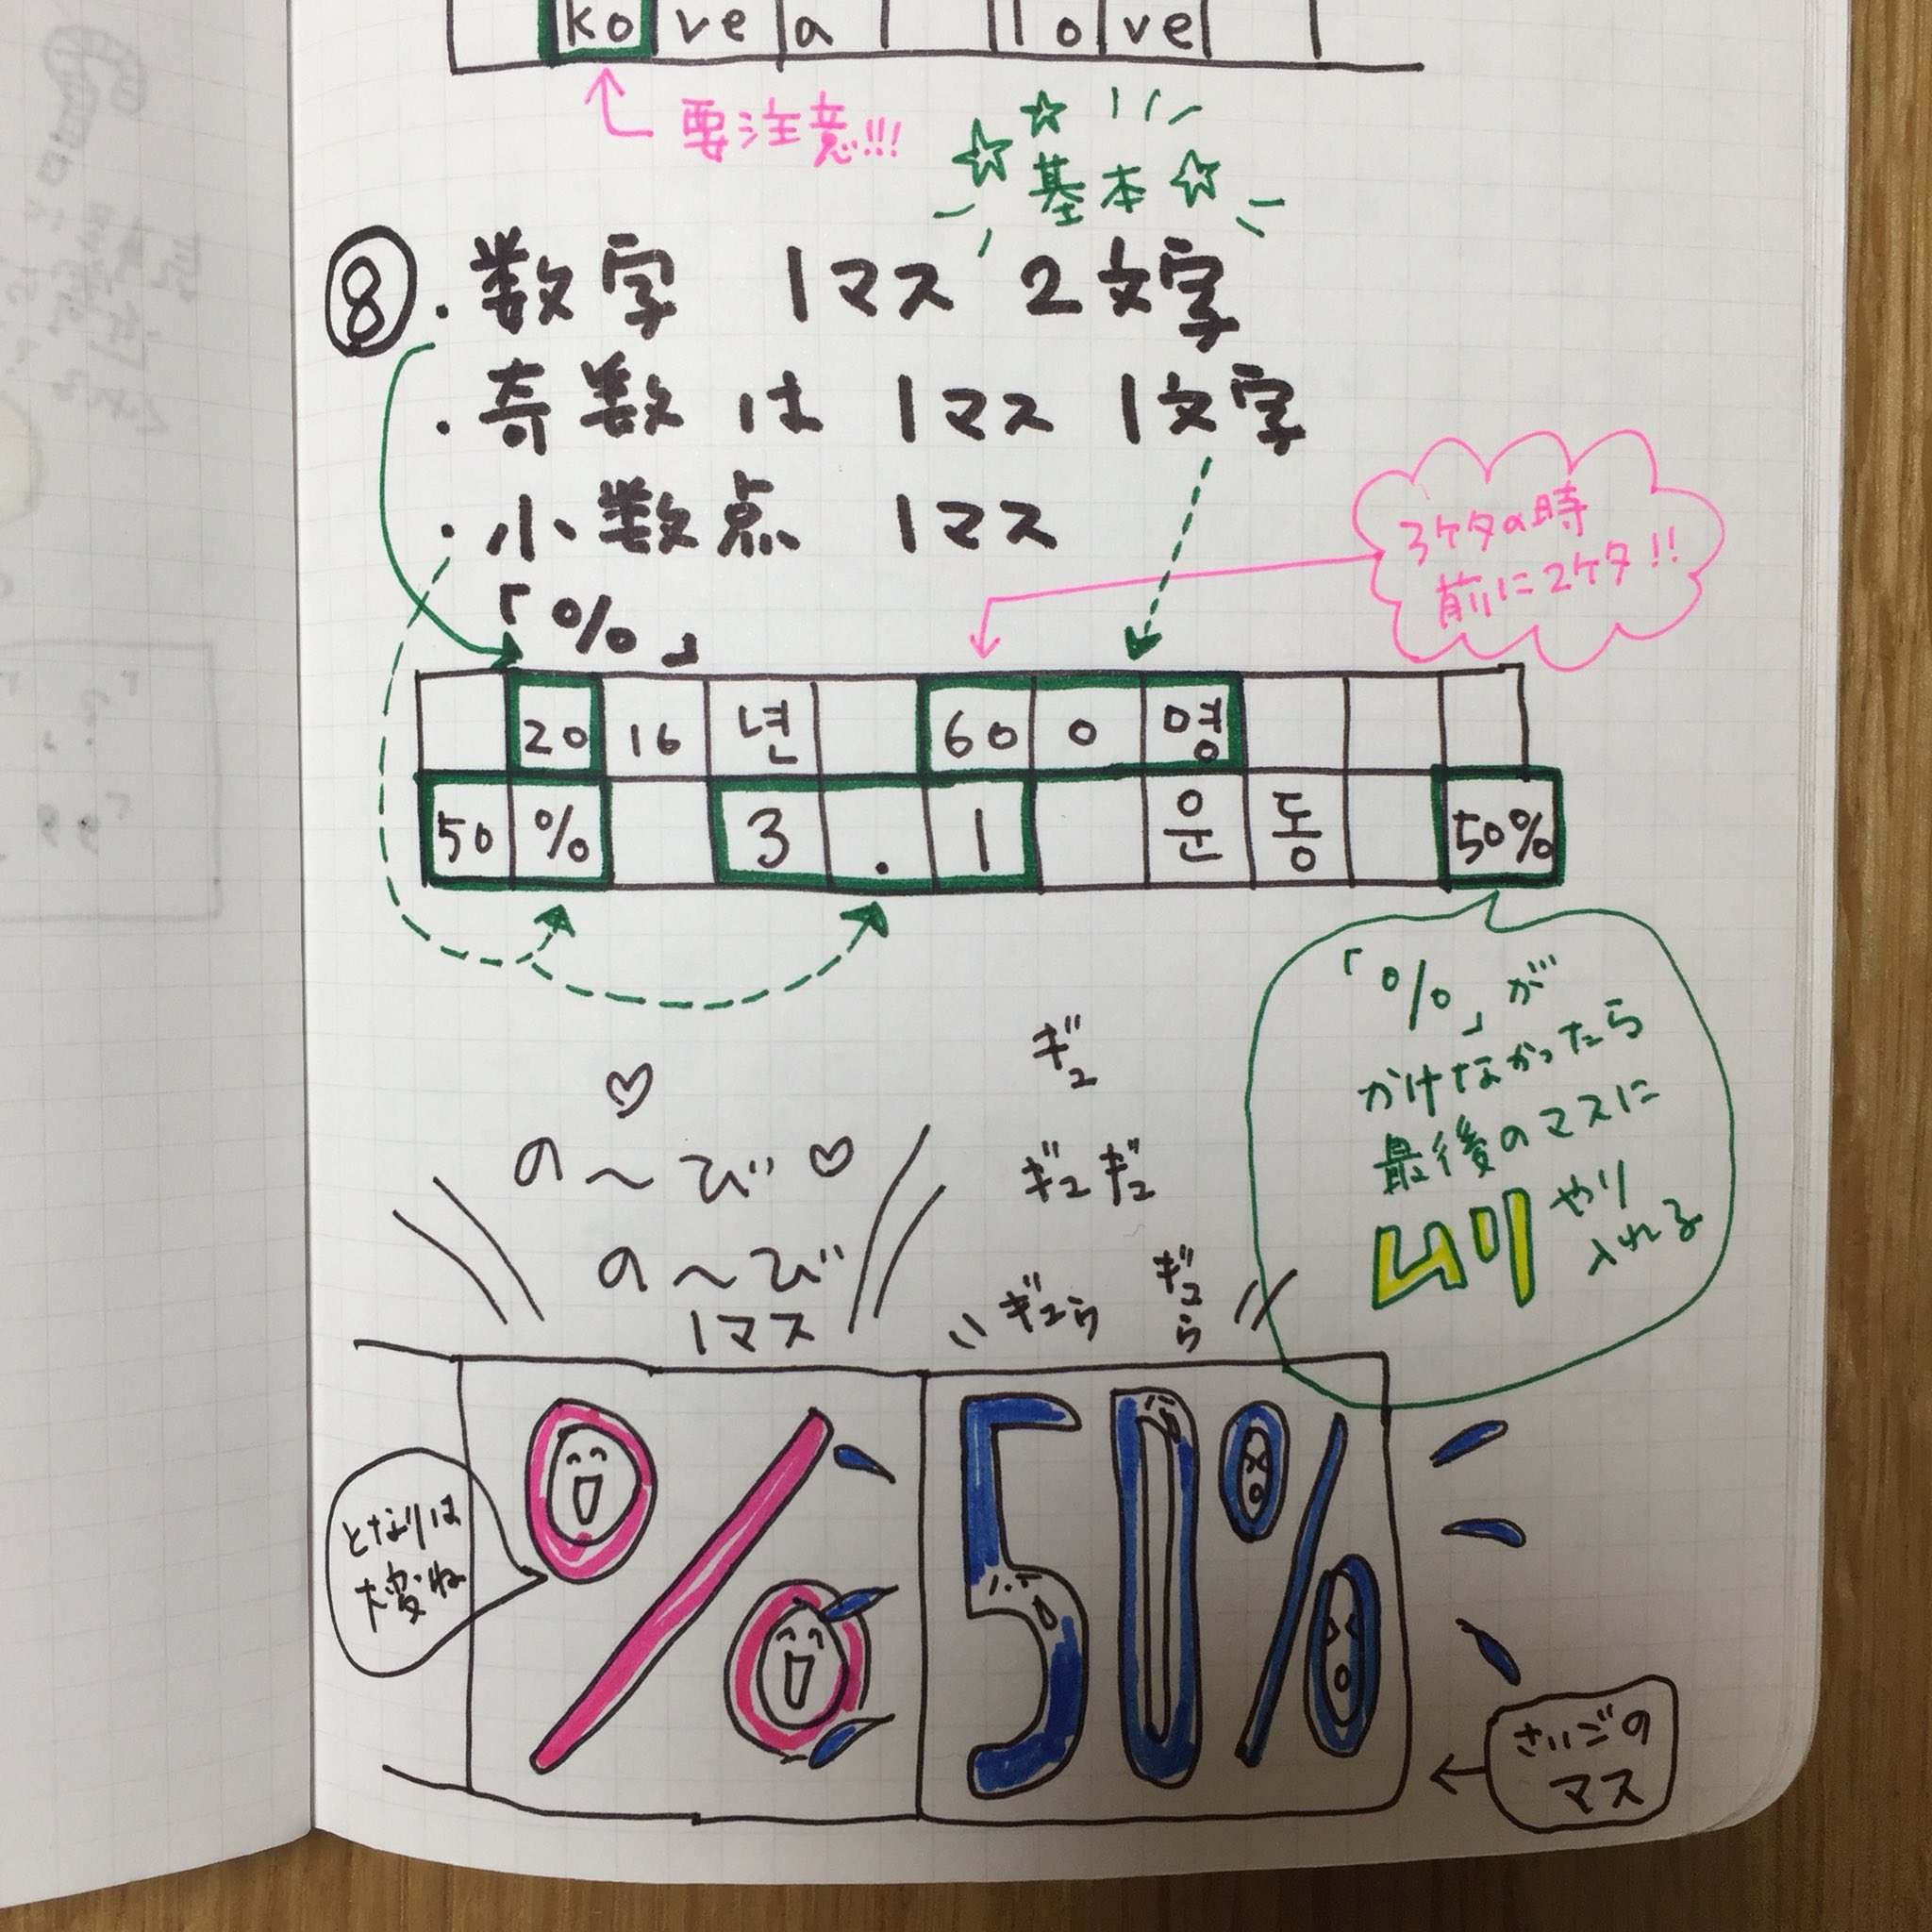 ko ve a lo ve
要注意!!!
基本
⑧・数字 1マス 2文字
・奇数は 1マス 1文字
・小数点 1マス
「%」
3ケタの時
前に2ケタ!!
20 16 년 60 0 명
50 % 3 . 1 운 동 50%
「%」が
かけなかったら
最後のマスに
ムリやり
入れる
の〜び
の〜び
1マス
ギュ
ギュギュ
ギュら
ギュら
となりは
大変ね
%
50%
さいごの
マス